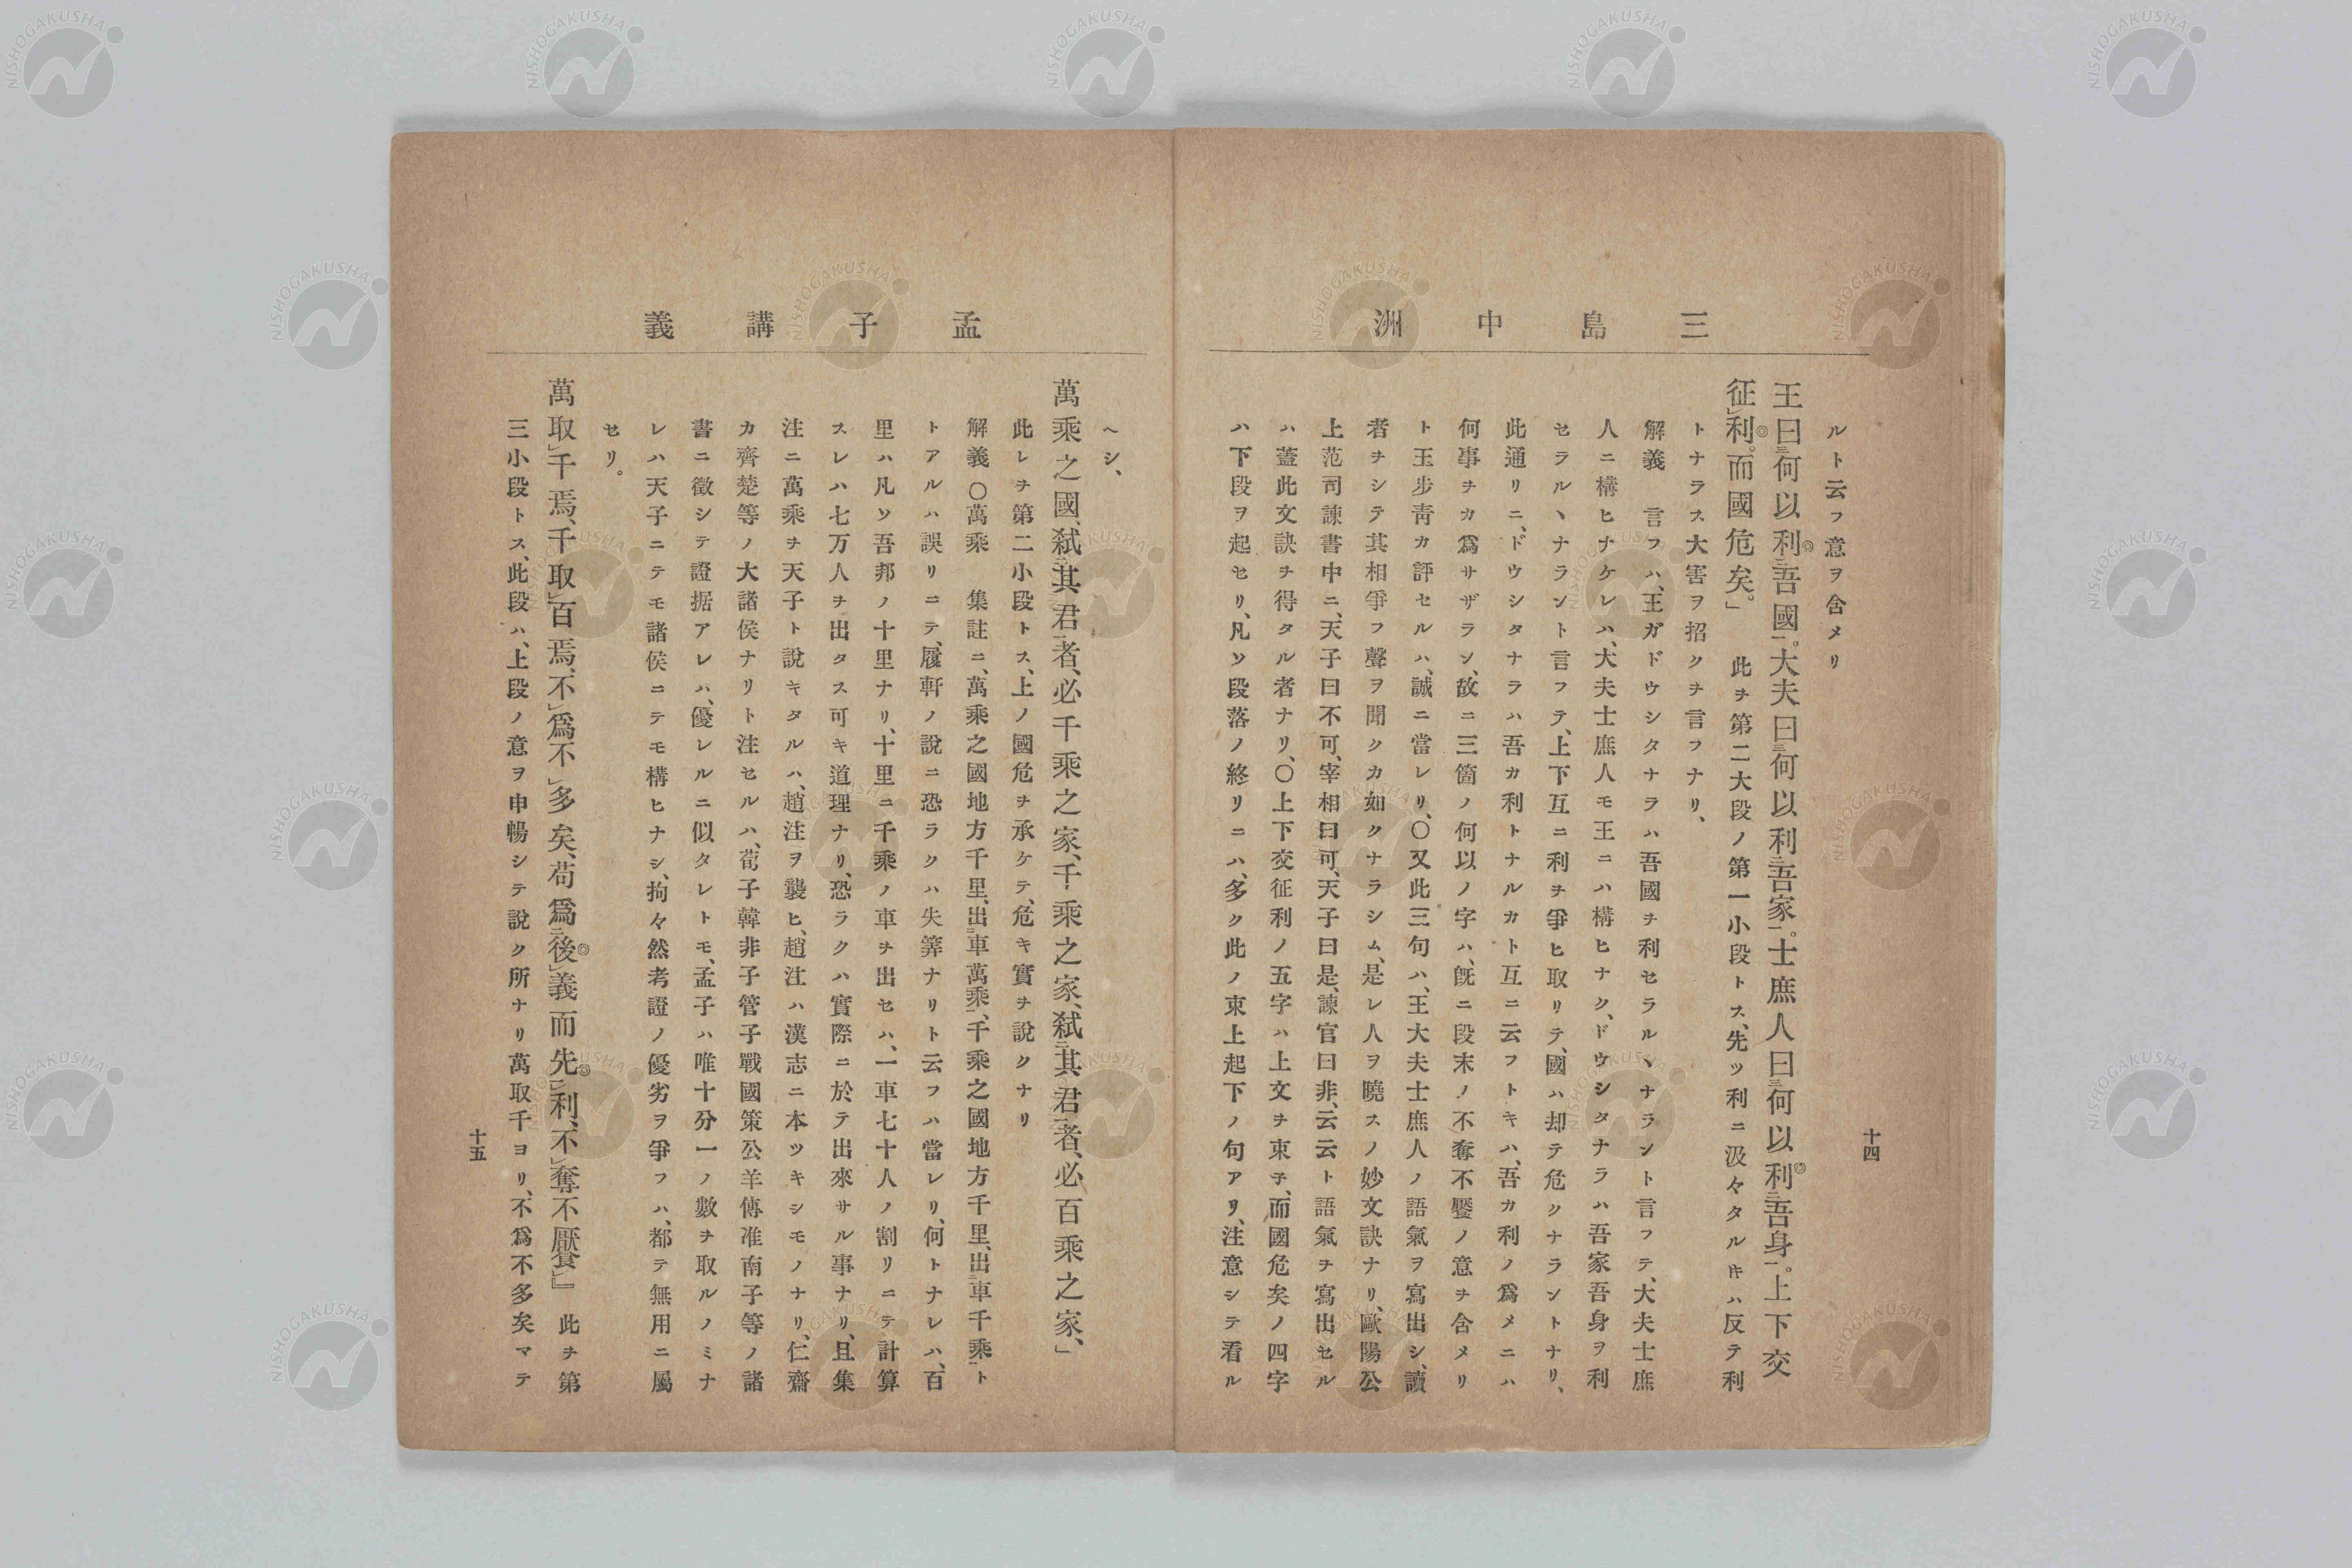 三島中洲
十四
ルト云フ意ヲ含メリ
王曰何以利吾國。大夫曰何以利吾家。士庶人曰何以利吾身。上下交
征利。而國危矣。」 此ヲ第二大段ノ第一小段トス、先ツ利ニ汲々タルキハ反テ利
トナラス大害ヲ招クヲ言フナリ、
解義 言フハ、王ガドウシタナラハ吾國ヲ利セラルヽナラント言フテ、大夫士庶
人ニ構ヒナケレハ、大夫士庶人モ王ニハ構ヒナク、ドウシタナラハ吾家吾身ヲ利
セラルヽナラント言フテ、上下互ニ利ヲ爭ヒ取リテ、國ハ却テ危クナラントナリ、
此通リニ、ドウシタナラハ吾カ利トナルカト互ニ云フトキハ、吾カ利ノ爲メニハ
何事ヲカ爲サザラン、故ニ三箇ノ何以ノ字ハ、既ニ段末ノ不奪不饜ノ意ヲ含メリ
ト王步靑カ評セルハ、誠ニ當レリ、〇又此三句ハ、王大夫士庶人ノ語氣ヲ寫出シ、讀
者ヲシテ其相爭フ聲ヲ聞クカ如クナラシム、是レ人ヲ曉スノ妙文訣ナリ、歐陽公
上范司諫書中ニ、天子曰不可、宰相曰可、天子曰是、諫官曰非、云云ト語氣ヲ寫出セル
ハ蓋此文訣ヲ得タル者ナリ、〇上下交征利ノ五字ハ上文ヲ束子、而國危矣ノ四字
ハ下段ヲ起セリ、凡ソ段落ノ終リニハ、多ク此ノ束上起下ノ句アリ、注意シテ看ル
孟子講義
ヘシ、
萬乘之國、弑其君者、必千乘之家、千乘之家、弑其君者、必百乘之家、」
此レヲ第二小段トス、上ノ國危ヲ承ケテ、危キ實ヲ説クナリ
解義 〇萬乘 集註ニ、萬乘之國地方千里、出車萬乘、千乘之國地方千里、出車千乘ト
トアルハ誤リニテ、履軒ノ說ニ恐ラクハ失筭ナリト云フハ當レリ、何トナレハ、百
里ハ凡ソ吾邦ノ十里ナリ、十里ニ千乘ノ車ヲ出セハ、一車七十人ノ割リニテ計算
スレハ七万人ヲ出タス可キ道理ナリ、恐ラクハ實際ニ於テ出來サル事ナリ、且集
注ニ萬乘ヲ天子ト說キタルハ、趙注ヲ襲ヒ、趙注ハ漢志ニ本ツキシモノナリ、仁齋
カ齊楚等ノ大諸侯ナリト注セルハ、荀子韓非子管子戰國策公羊傳准南子等ノ諸
書ニ徵シテ證据アレハ、優レルニ似タレトモ、孟子ハ唯十分一ノ數ヲ取ルノミナ
レハ天子ニテモ諸侯ニテモ構ヒナシ、拘々然考證ノ優劣ヲ爭フハ、都テ無用ニ屬
セリ。
萬取千焉、千取百焉、不爲不多矣、苟爲後義而先利、不奪不厭餐』 此ヲ第
三小段トス、此段ハ、上段ノ意ヲ申暢シテ說ク所ナリ萬取千ヨリ、不爲不多矣マテ
十五